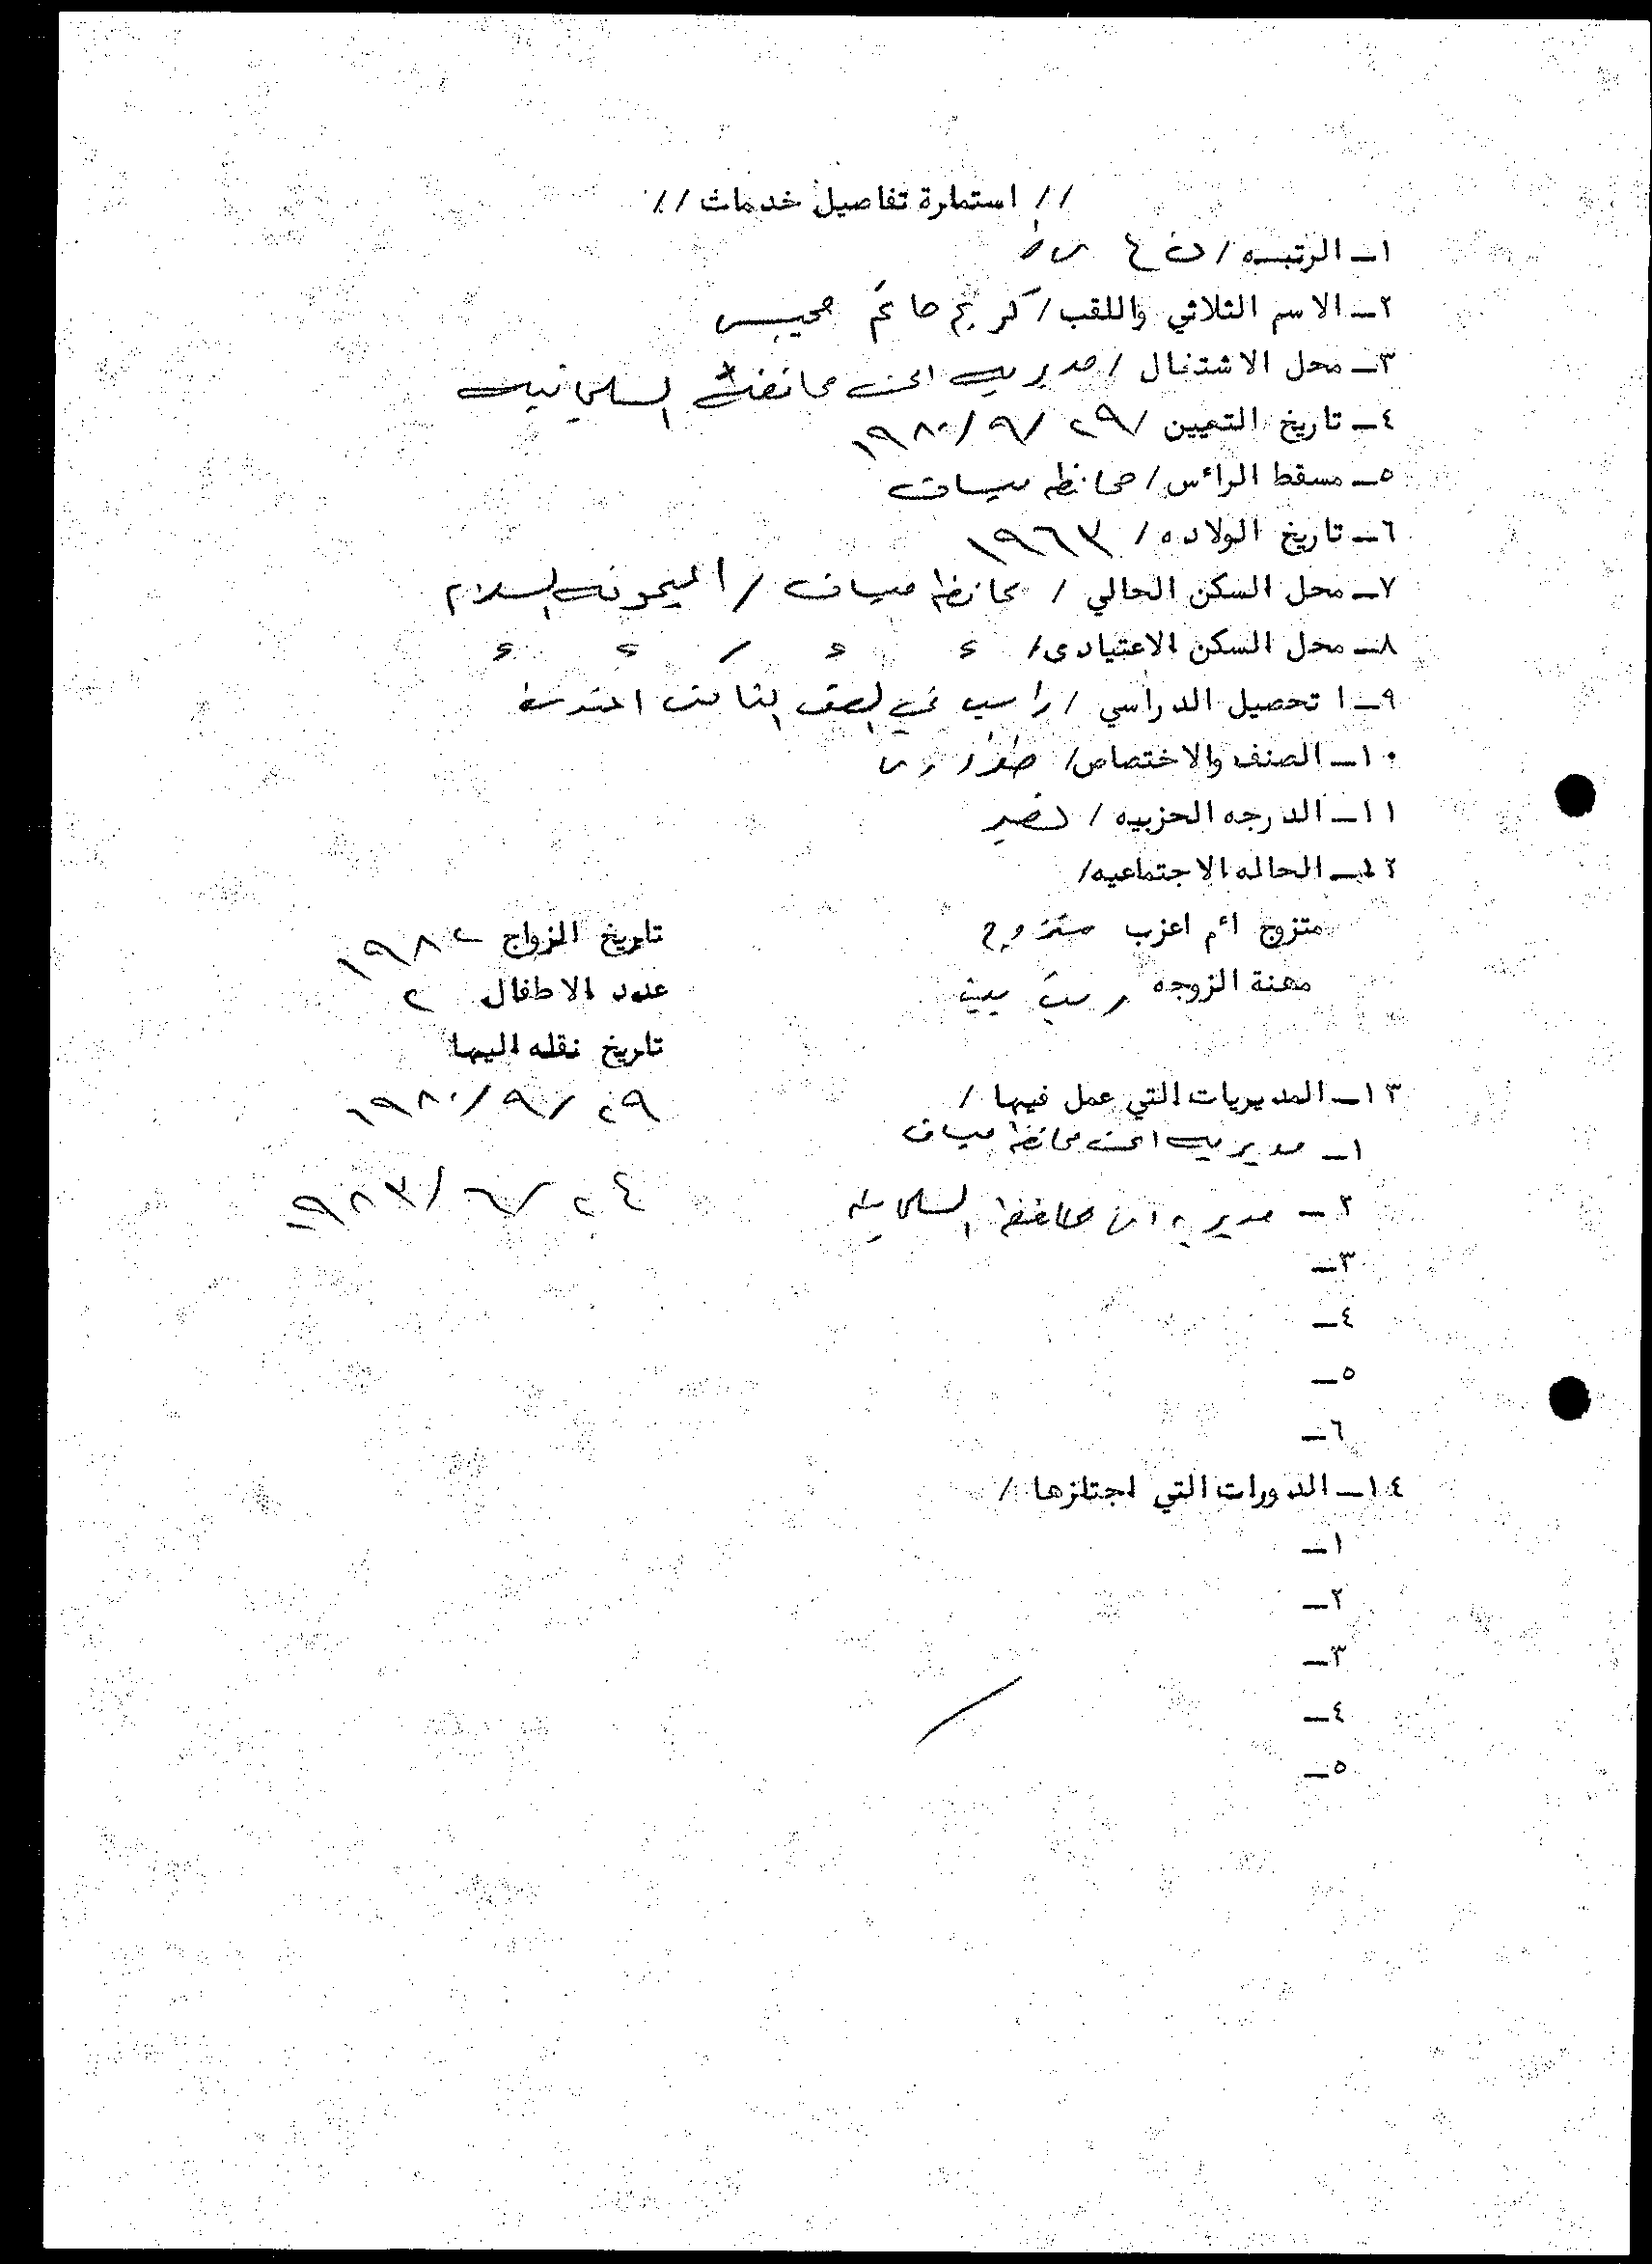 // استمارة تفاصيل خدمات //
١ـ الرتبه / ن ع
٢ـ الاسم الثلاثي واللقب / كريم حاتم محيبس
٣ـ محل الاشتغال / مديرية امن محافظة السليمانية
٤ـ تاريخ التعيين / ٢٩/ ٩/ ١٩٨٠
٥ـ مسقط الرائس / محافظة ميسان
٦ـ تاريخ الولاده / ١٩٦٣
٧ـ محل السكن الحالي / محافظة ميسان / الميمونه السلام
٨ـ محل السكن الاعتيادى / ء ء / ء ء
٩ـ ا تحصيل الدراسي / راسب في الصف الثالث المتوسط
١٠ـ الصنف والاختصاص /
١١ـ الدرجه الحزبيه / نصير
١٢ـ الحاله الاجتماعيه /
متزوج ائم اعزب متزوج تاريخ الزواج ١٩٨٢
مهنة الزوجه ربت بيت عدد الاطفال ٢
تاريخ نقله اليها
١٣ـ المديريات التي عمل فيها /
١ـ مديرية امن محافظة ميسان ٢٩/ ٩/ ١٩٨٠
٢ـ مديرية امن محافظة السليمانية ٢٤/ ٦/ ١٩٨٣
٣ـ
٤ـ
٥ـ
٦ـ
١٤ـ الدورات التي اجتازها /
١ـ
٢ـ
٣ـ
٤ـ
٥ـ